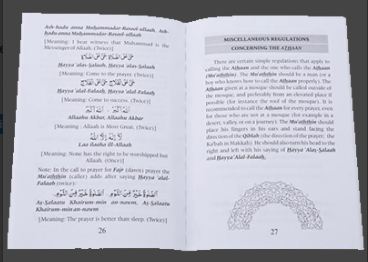 Ash-
hadu anna Muhammadar-Rasool-ullaah.
[Meaning: I bear witness that Muhammad is the
Messenger of Allaah. (Twice)]
حَيَّ عَلَى الصَّلَاةِ حَيَّ عَلَى الصَّلَاةِ
Hayya 'alas-Salaah, Hayya 'alas-Salaah
[Meaning: Come to the prayer. (Twice)]
حَيَّ عَلَى الْفَلَاحِ حَيَّ عَلَى الْفَلَاحِ
Hayya 'alal-Falaah, Hayya 'alal-Falaah
[Meaning: Come to success. (Twice)]
اللهُ أَكْبَرُ اللهُ أَكْبَرُ
Allaahu Akbar, Allaahu Akbar
[Meaning : Allaah is Most Great. (Twice)]
لَا إِلَهَ إِلَّا اللهُ
Laa ilaaha ill-Allaah
[Meaning: None has the right to be worshipped but
Allaah. (Once)]
Note: In the call to prayer for Fajr (dawn) prayer
the Mu'aththin (caller) adds after saying Hayya 'alal-
Falaah (twice):
الصَّلَاةُ خَيْرٌ مِنَ النَّوْمِ الصَّلَاةُ خَيْرٌ مِنَ النَّوْمِ
As-Salaatu Khairum-min an-nawm, As-Salaatu
Khairum-min an-nawm
[Meaning: The prayer is better than sleep. (Twice)]
26
MISCELLANEOUS REGULATIONS
CONCERNING THE ATHAAN
There are certain simple regulations that apply to
calling the Athaan and the one who calls the Athaan
(Mu'aththin). The Mu'aththin should be a man (or a
boy who knows how to call the Athaan properly). The
Athaan given at a mosque should be called outside of
the mosque, and preferably from an elevated place if
possible (for instance the roof of the mosque). It is
recommended to call the Athaan for every prayer, even
for those who are not at a mosque (for example in a
desert, valley, or on a journey). The Mu'aththin should
place his fingers in his ears and stand facing the
direction of the Qiblah (the direction of the prayer; the
Ka'bah in Makkah). He should also turn his head to the
right and left with his saying of Hayya 'Alas-Salaah
and Hayya 'Alal-Falaah.
27